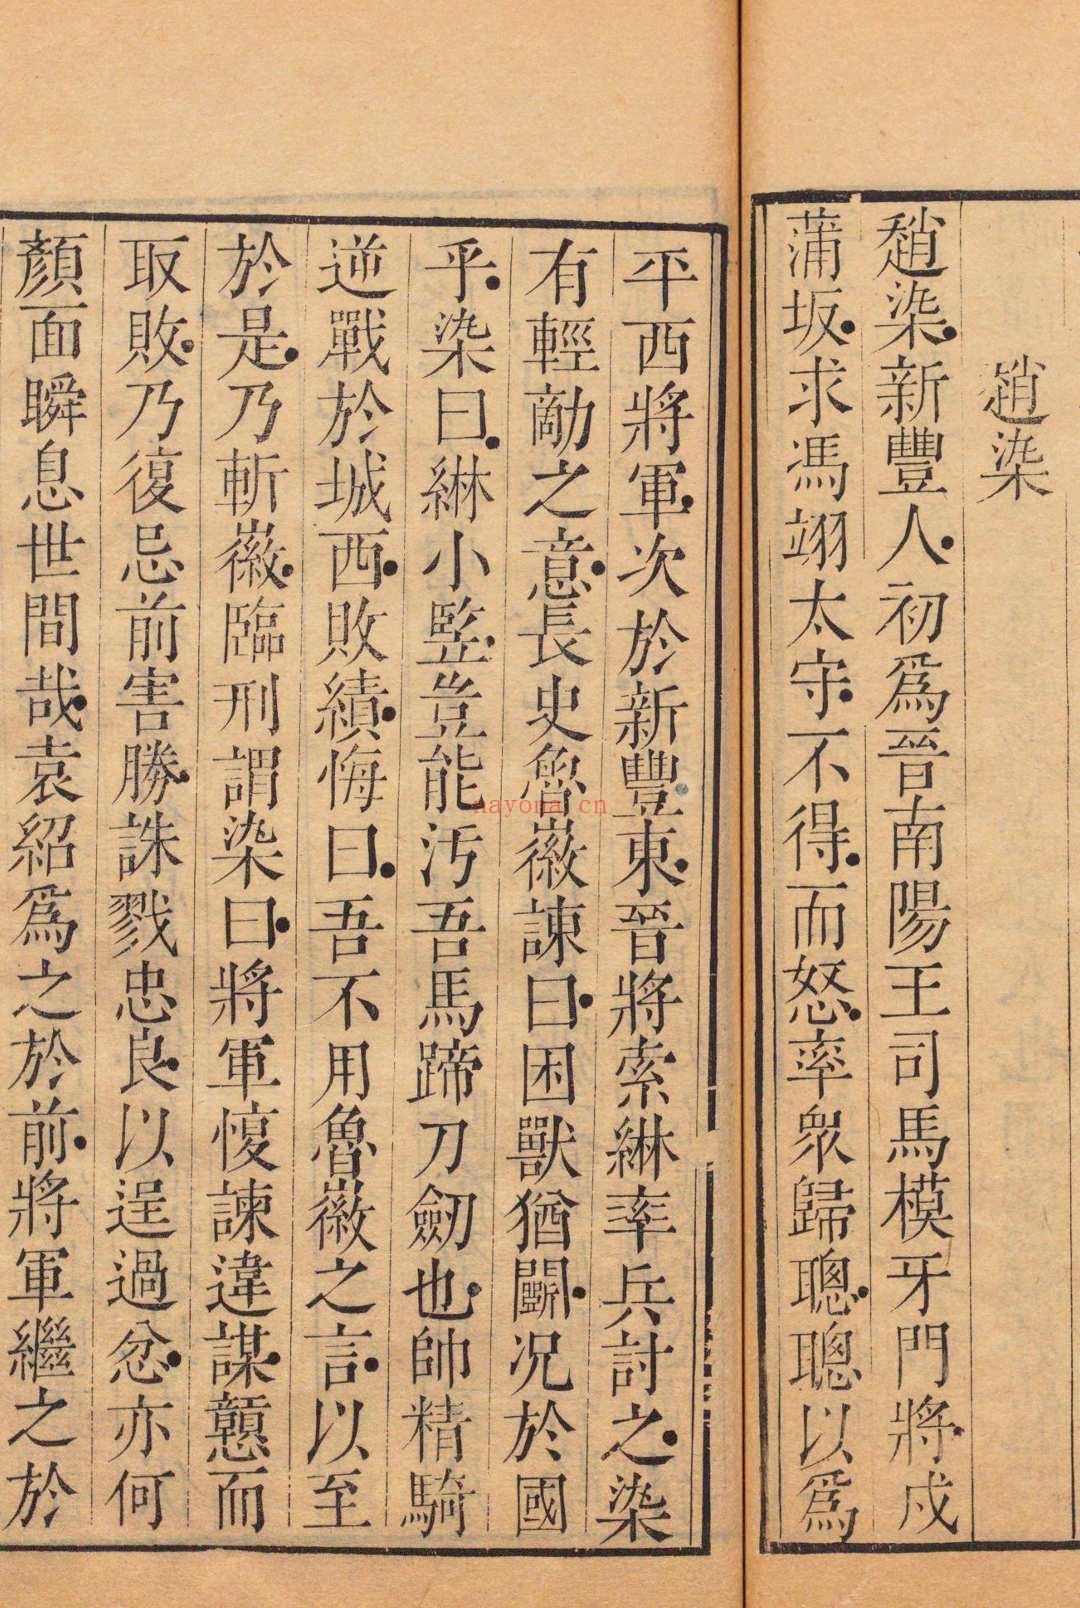 趙染
趙染新豐人初為晉南陽王司馬模牙門將戍
蒲坂求馮翊太守不得而怒率衆歸聰聰以為
平西將軍次於新豐東晉將索綝率兵討之染
有輕敵之意長史魯徽諫曰困獸猶鬭況於國
乎染曰綝小豎豈能汚吾馬蹄刀劒也帥精騎
逆戰於城西敗績悔曰吾不用魯徽之言以至
於是乃斬徽臨刑謂染曰將軍愎諫違謀戇而
取敗乃復忌前害勝誅戮忠良以逞過忿亦何
顏面瞬息世間哉袁紹為之於前將軍繼之於
nayona.cn